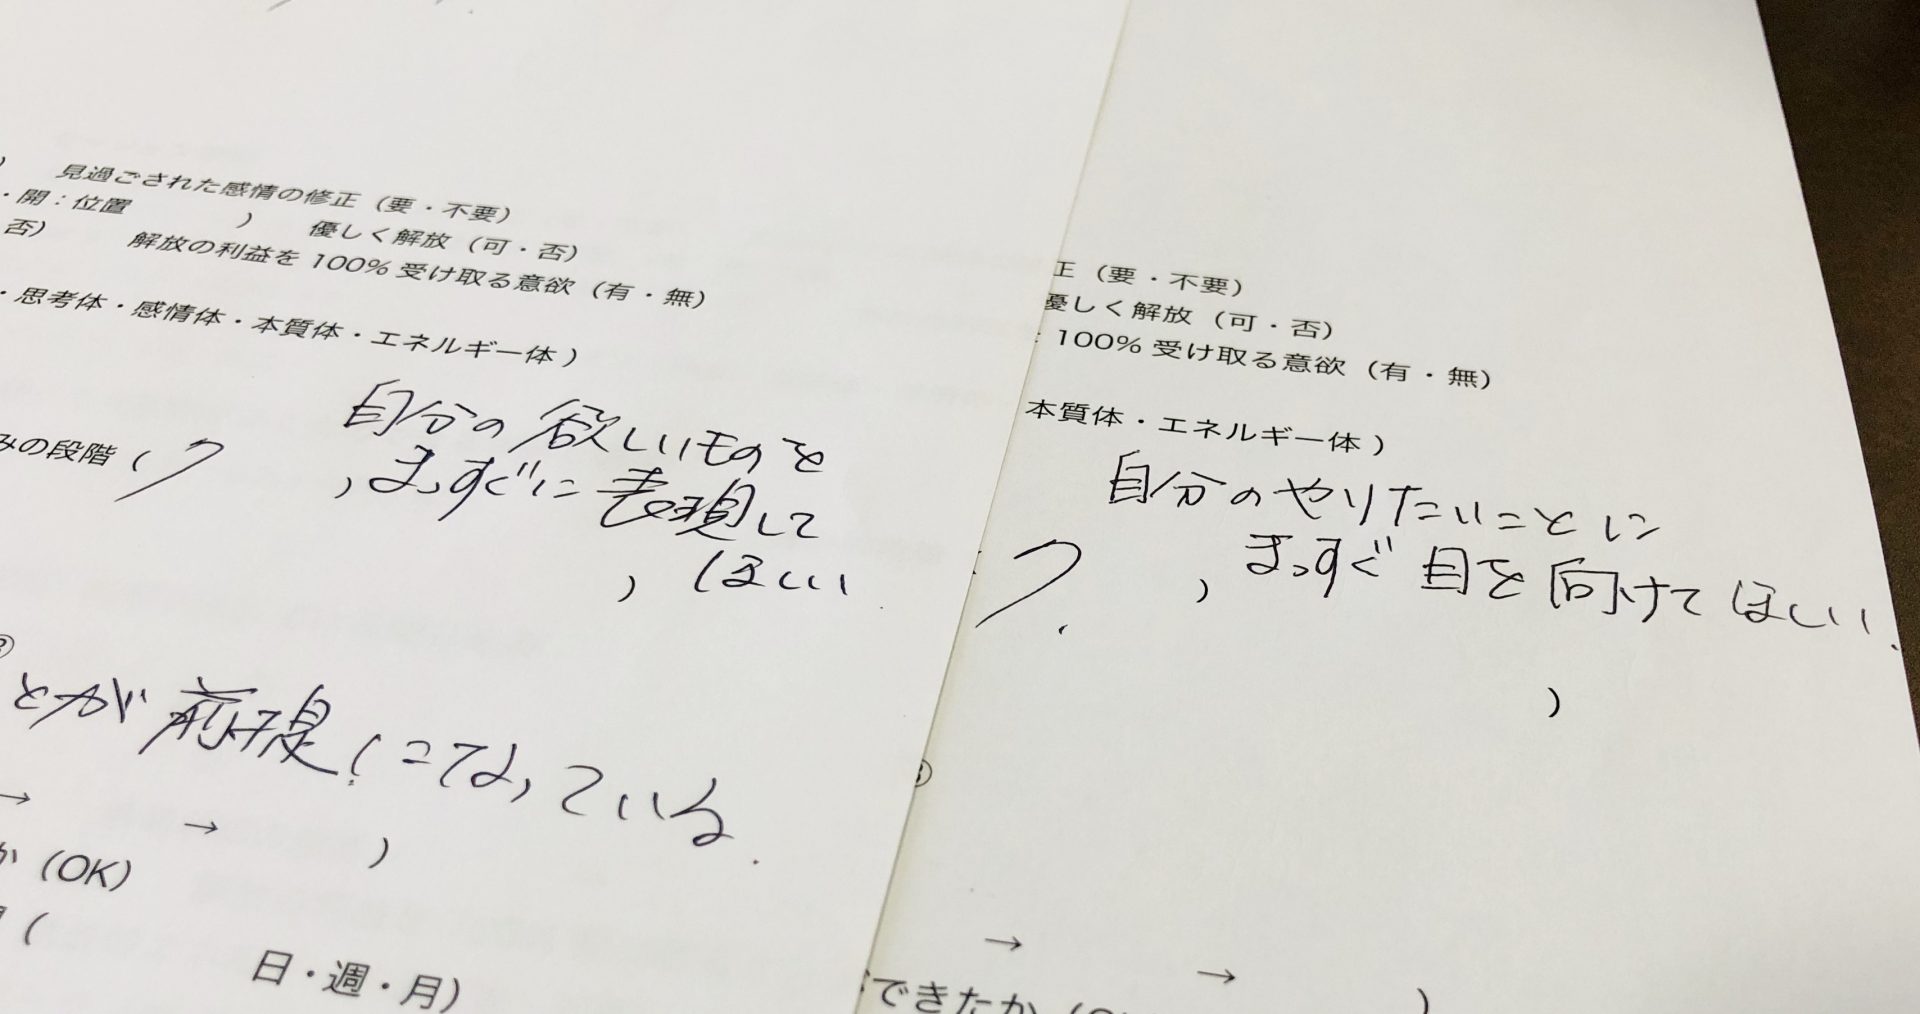 見過ごされた感情の修正（要・不要）
・開：位置　　）　優しく解放（可・否）
否）　解放の利益を 100% 受け取る意欲（有・無）
・思考体・感情体・本質体・エネルギー体）
自分の欲しいものを
みの段階（ク　，まっすぐに表現して
）ほしい
③
とが前提になっている．
→　→　）
か（OK）
（
日・週・月）
正（要・不要）
優しく解放（可・否）
100% 受け取る意欲（有・無）
本質体・エネルギー体）
自分のやりたいことに
ク．，まっすぐ目を向けてほしい．
）
→　→　）
できたか（